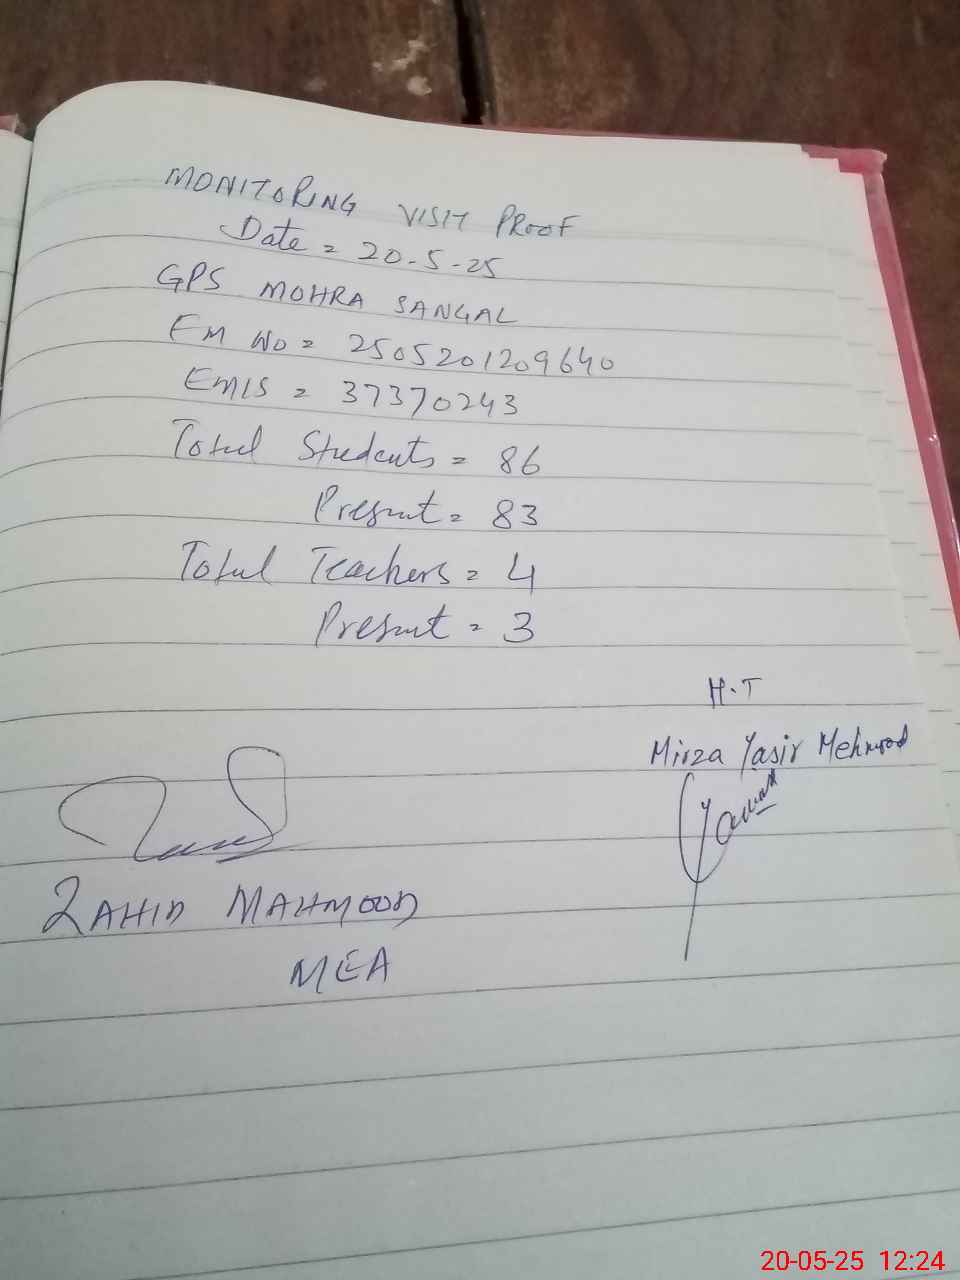 MONITORING VISIT PROOF
Date = 20-5-25
GPS MOHRA SANGAL
EM NO = 2505201209640
EMIS = 37370243
Total Students = 86
Present = 83
Total Teachers = 4
Present = 3
H.T
Mirza Yasir Mehmood
ZAHID MAHMOOD
MEA
20-05-25 12:24